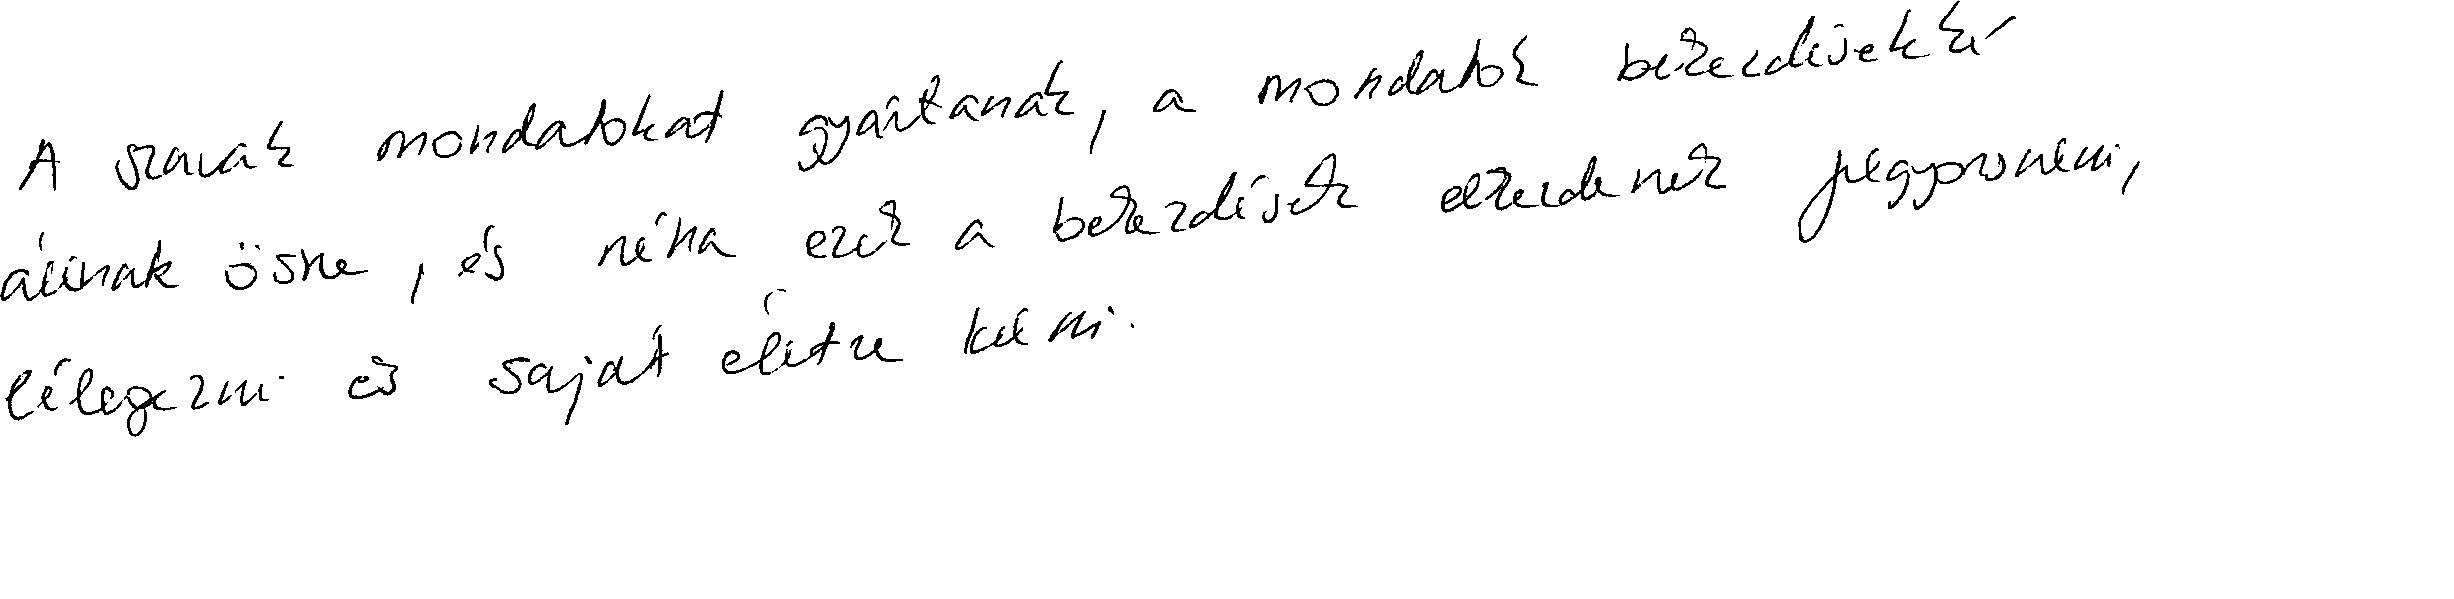 A szavak mondatokat gyártanak, a mondatok bekezdésekké
állnak össze, és néha ezek a bekezdések elkezdenek
lélegezni és saját életre kelni.